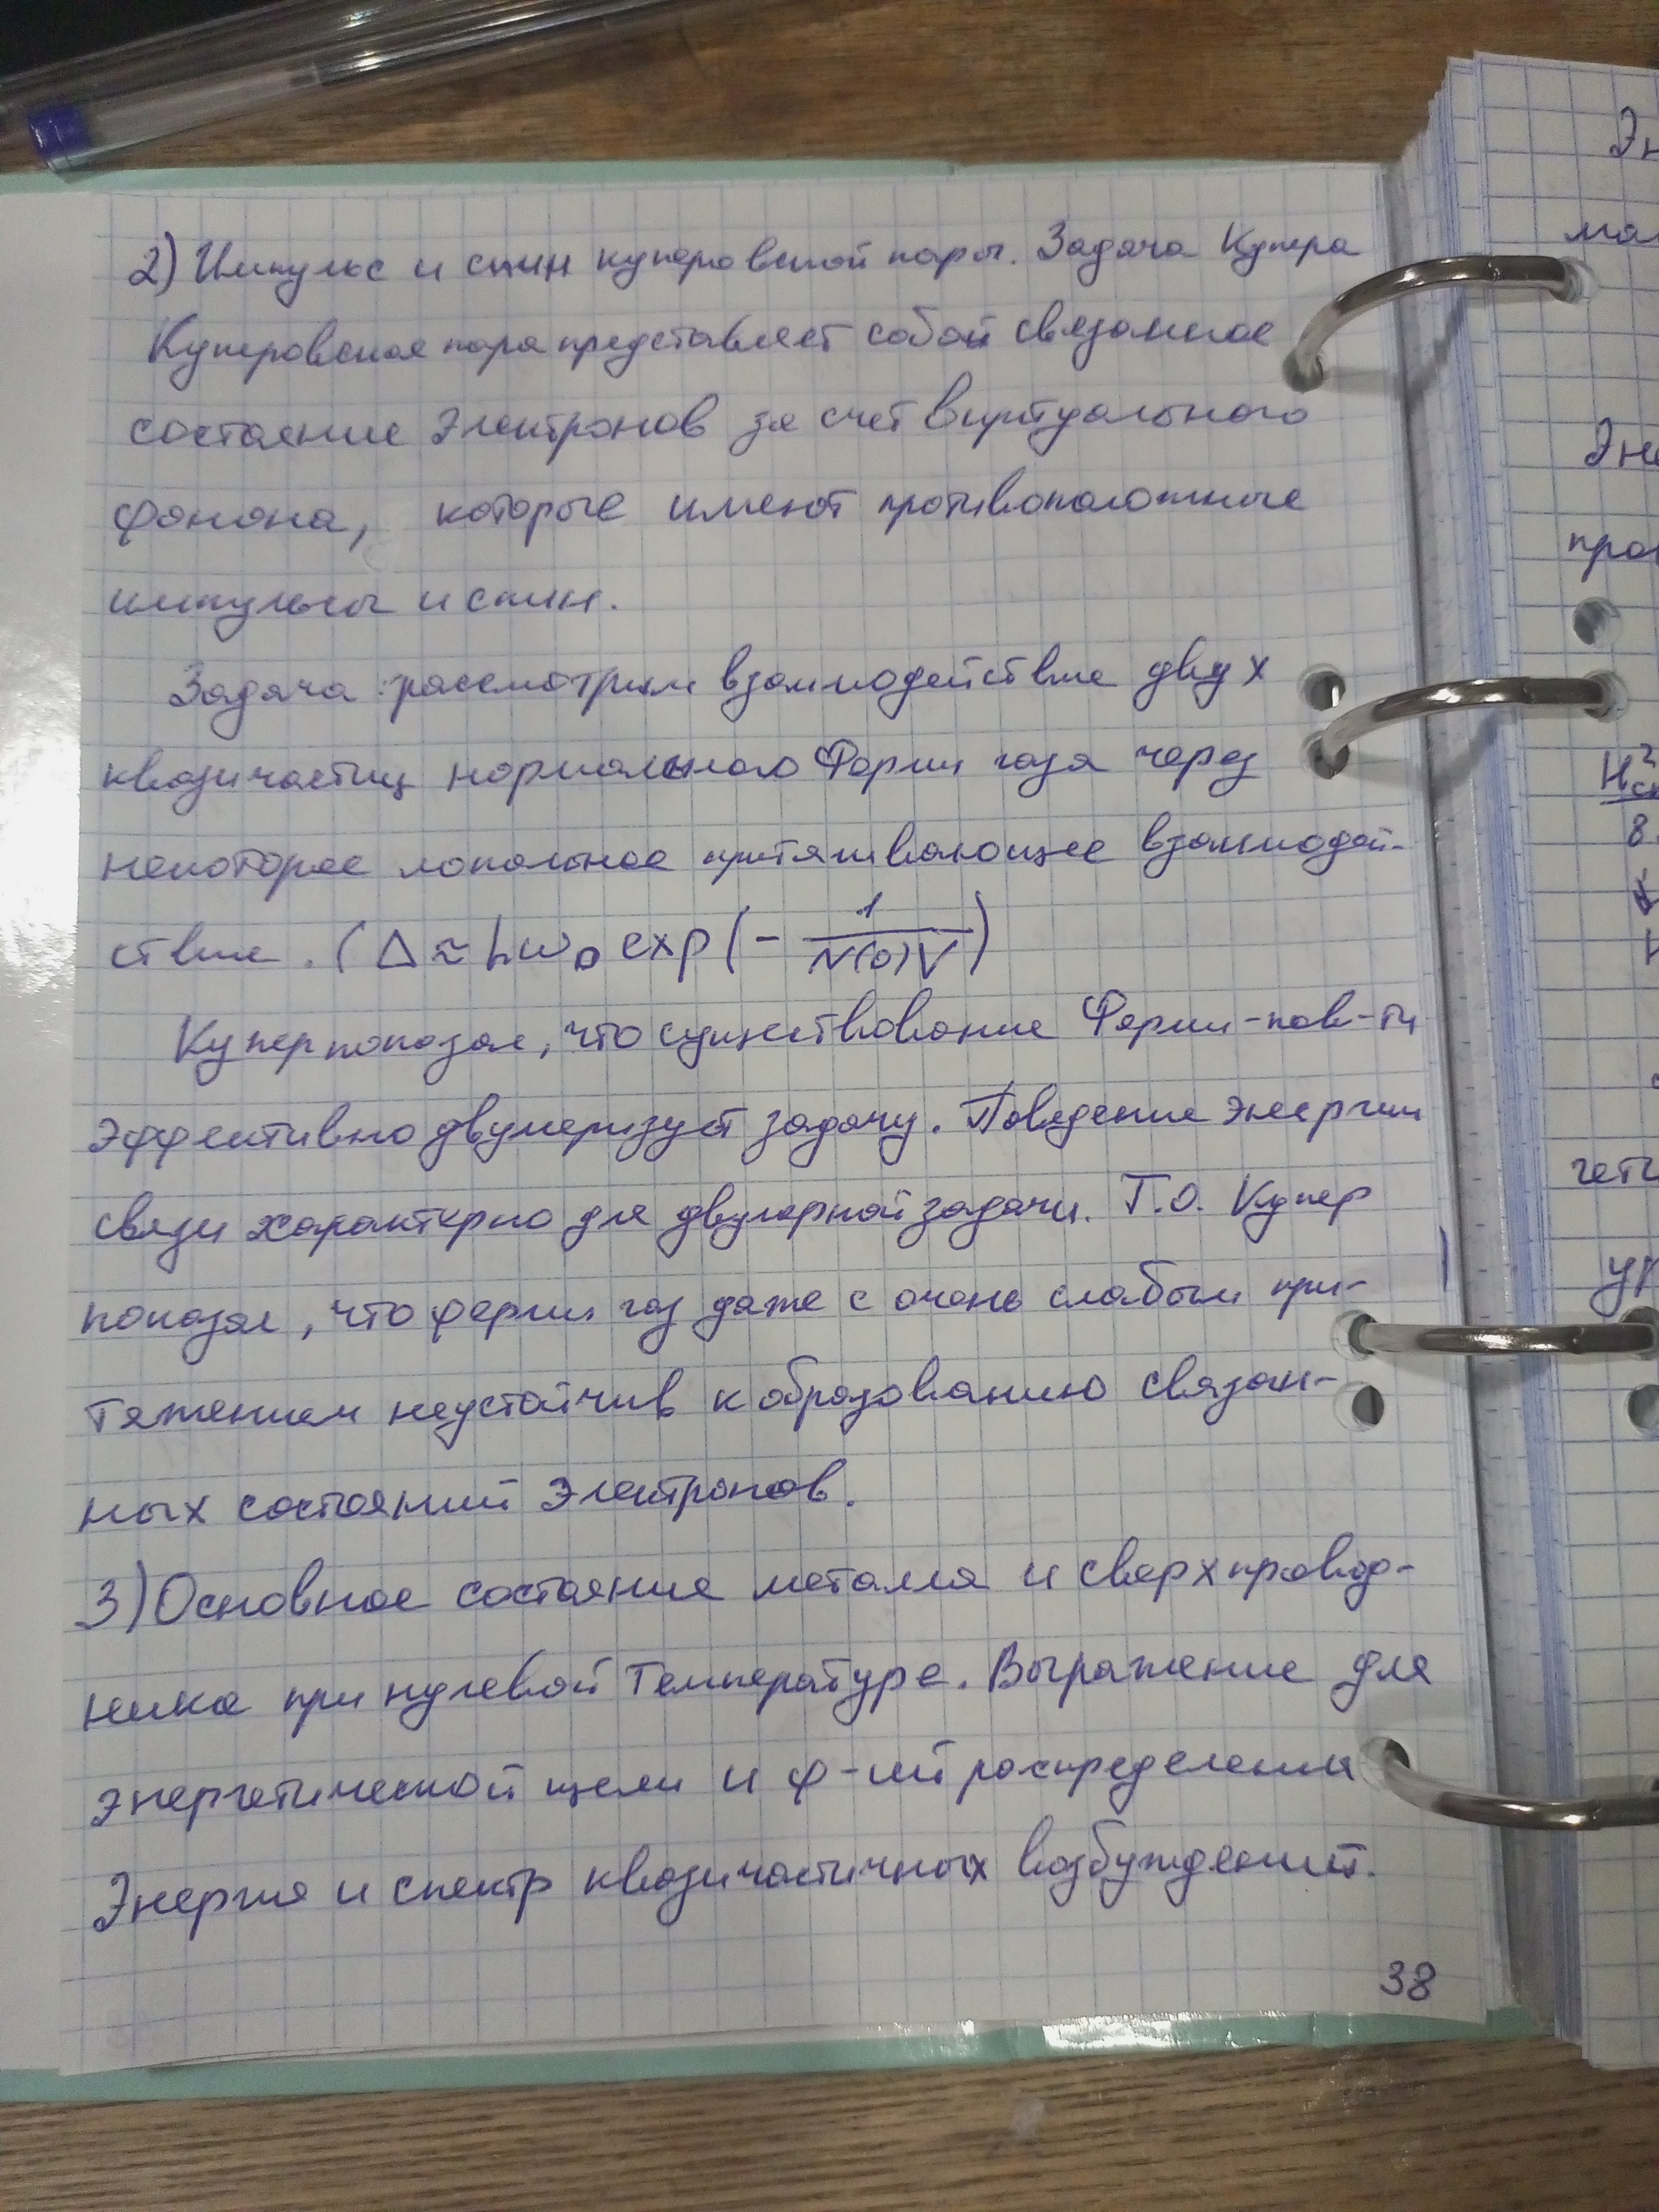 2) Импульс и спин куперовской пары. Задача Купера
Куперовская пара представляет собой связанное
состояние электронов за счет виртуального
фонона, которые имеют противоположные
импульсы и спин.
Задача: рассмотрим взаимодействие двух
квазичастиц нормального Ферми газа через
некоторое локальное притягивающее взаимодей-
ствие. (Δ ≈ ħω_D exp(-1/(N(0)V))
Купер показал, что существование Ферми-пов-ти
эффективно двумеризует задачу. Поведение энергии
связи характерно для двумерной задачи. Т.О. Купер
показал, что ферми газ даже с очень слабым при-
тяжением неустойчив к образованию связан-
ных состояний электронов.
3) Основное состояние металла и сверхпровод-
ника при нулевой температуре. Выражение для
энергетической щели и ф-ий распределения
Энергия и спектр квазичастичных возбуждений.
38